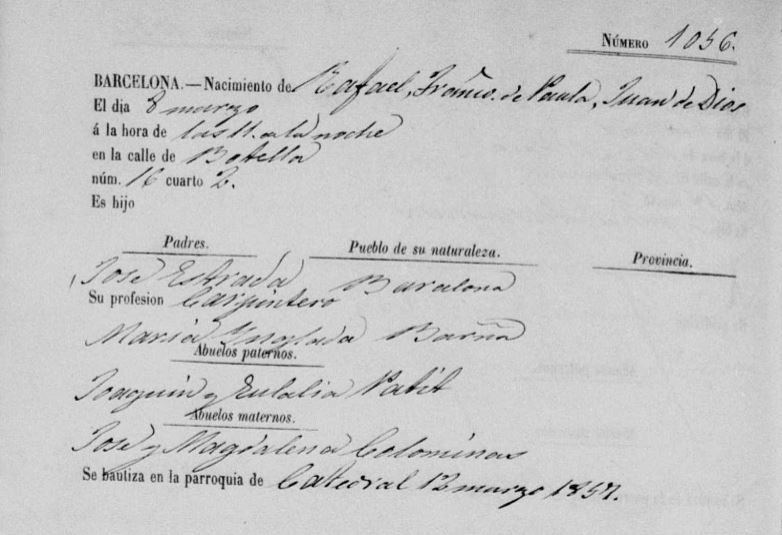 NÚMERO 1056.
BARCELONA.—Nacimiento de Rafael, Franco. de Paula, Juan de Dios
El dia 8 marzo
á la hora de las 11 a la noche
en la calle de Botella
núm. 16 cuarto 2.
Es hijo
Padres. Pueblo de su naturaleza. Provincia.
José Estrada Barcelona
Su profesion Carpintero
Maria Inglada Barna
Abuelos paternos.
Joaquin y Eulalia Patit
Abuelos maternos.
José y Magdalena Colominas
Se bautiza en la parroquia de Catedral 12 marzo 1857.